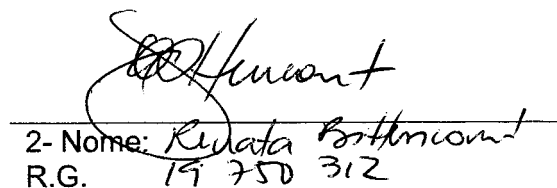 2- Nome: Renata Bittencourt
R.G. 19 750 312